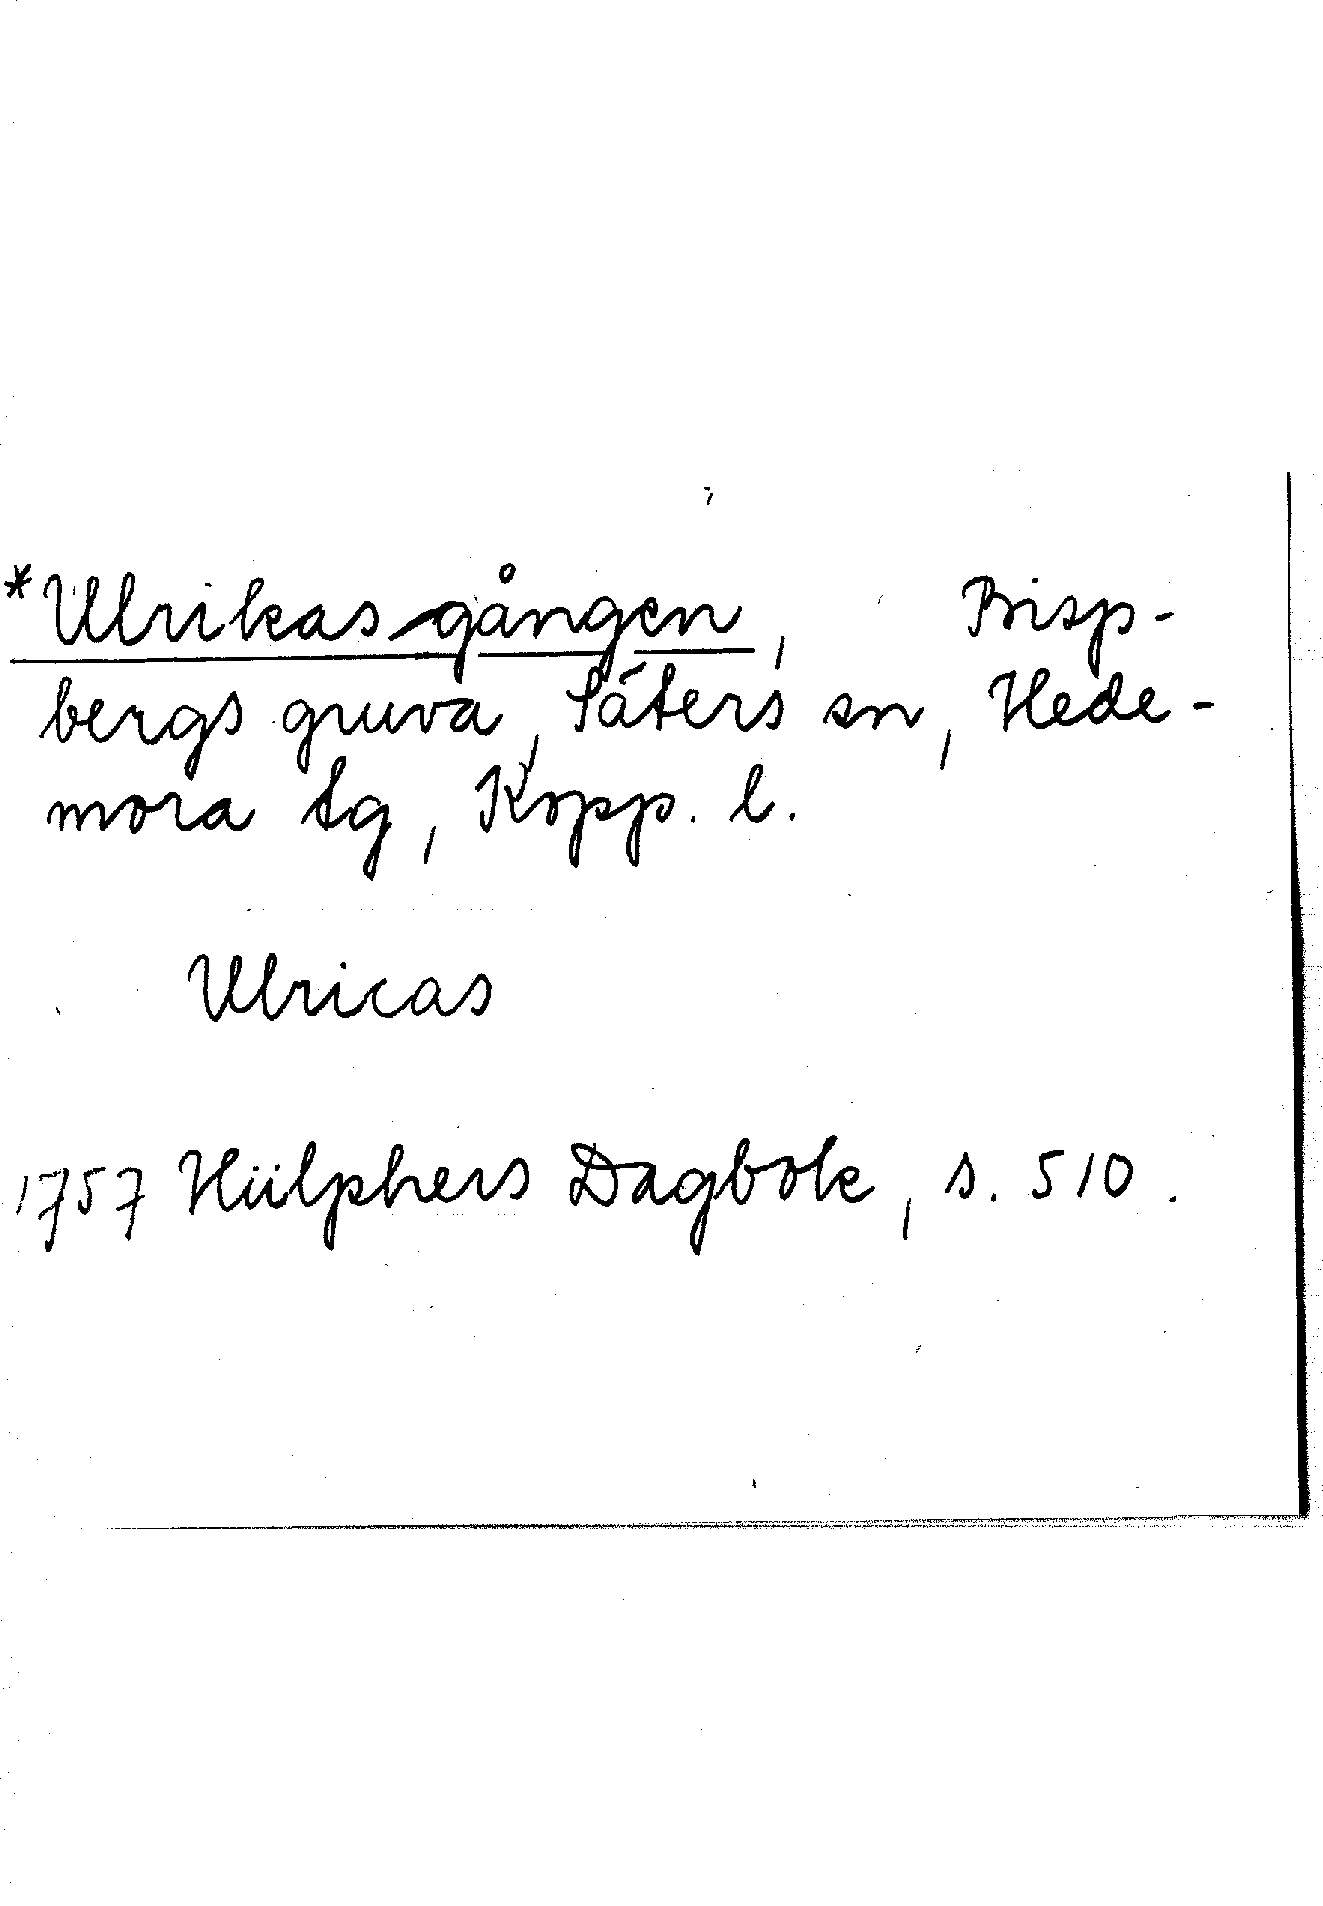 *Ulrikasgången, Bisp-
bergs gruva, Säters sn, Hede-
mora tg, Kopp. l.
Ulricas
1757 Hülphers Dagbok, s. 510.